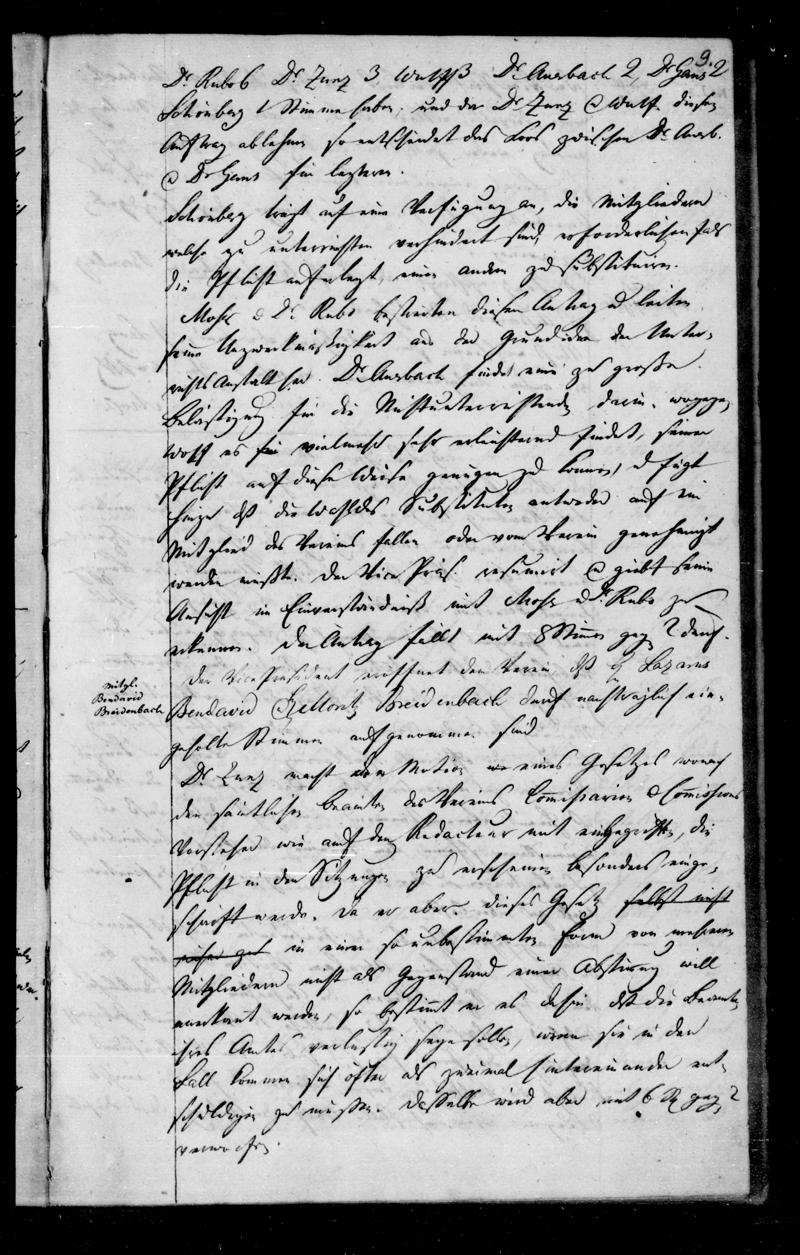 9.
Dr Rubo 6 Dr Zunz 3 Wolff 3 Dr Auerbach 2, Dr Gans 2
Schönberg 1 Stimme haben, und da Dr Zunz & Wolf diesen
Auftrag ablehnen so entscheidet das Loos zwischen Dr Auerb.
& Dr Gans für letztern.
Schönberg trägt auf eine Verfügung an, die Mitgliedern
welche zu unterrichten verhindert sind, erforderlichenfals
die Pflicht auferlegt, einen andern zu substituiren.
Moser & Dr Rubo bestreiten diesen Antrag u leiten
seine Unzweckmäßigkeit aus der Grundidee der Unter-
richts Anstalt her. Dr Auerbach findet eine zu große
Belästigung für die Nichtunterrichtenden darin, wogegen
Wolff es für vielmehr sehr erleichternd findet, seiner
Pflicht auf diese Weise genügen zu können, u fügt
hinzu daß die Wahl des Substituten entweder auf ein
Mitglied des Vereins fallen oder vom Verein genehmigt
werden müßte. Der Vice Präs. resumirt & giebt seine
Ansicht im Einverständniß mit Moser u Dr Rubo zu
erkennen. Der Antrag fällt mit 8 Stimmen geg 2 durch.
Der Vice Präsident eröffnet dem Verein daß H Lazarus
Mitgl.
Bendavid
Breidenbach
Bendavid & Moritz Breidenbach durch nachträglich ein-
geholte Stimmen aufgenommen sind
Dr Zunz macht die Motion eines Gesetzes wonach
den sämtlichen Beamten des Vereins Comissarien & Comissions
Vorsteher wie auch den Redacteur mit einbegriffen, die
Pflicht in den Sitzungen zu erscheinen besonders einge-
schärft werde. Da er aber dieses Gesetz selbst nicht
in einer so unbestimmten Form von mehreren
Mitgliedern nicht als Gegenstand einer Abstimmung will
anerkannt werden, so bestimmt er es dahin daß die Beamten
ihres Amtes verlustig seyn sollen, wenn sie in den
Fall kommen sich öfter als zweimal hintereinander ent-
schuldigen zu müssen. Dasselbe wird aber mit 6 St geg 2
verworfen.